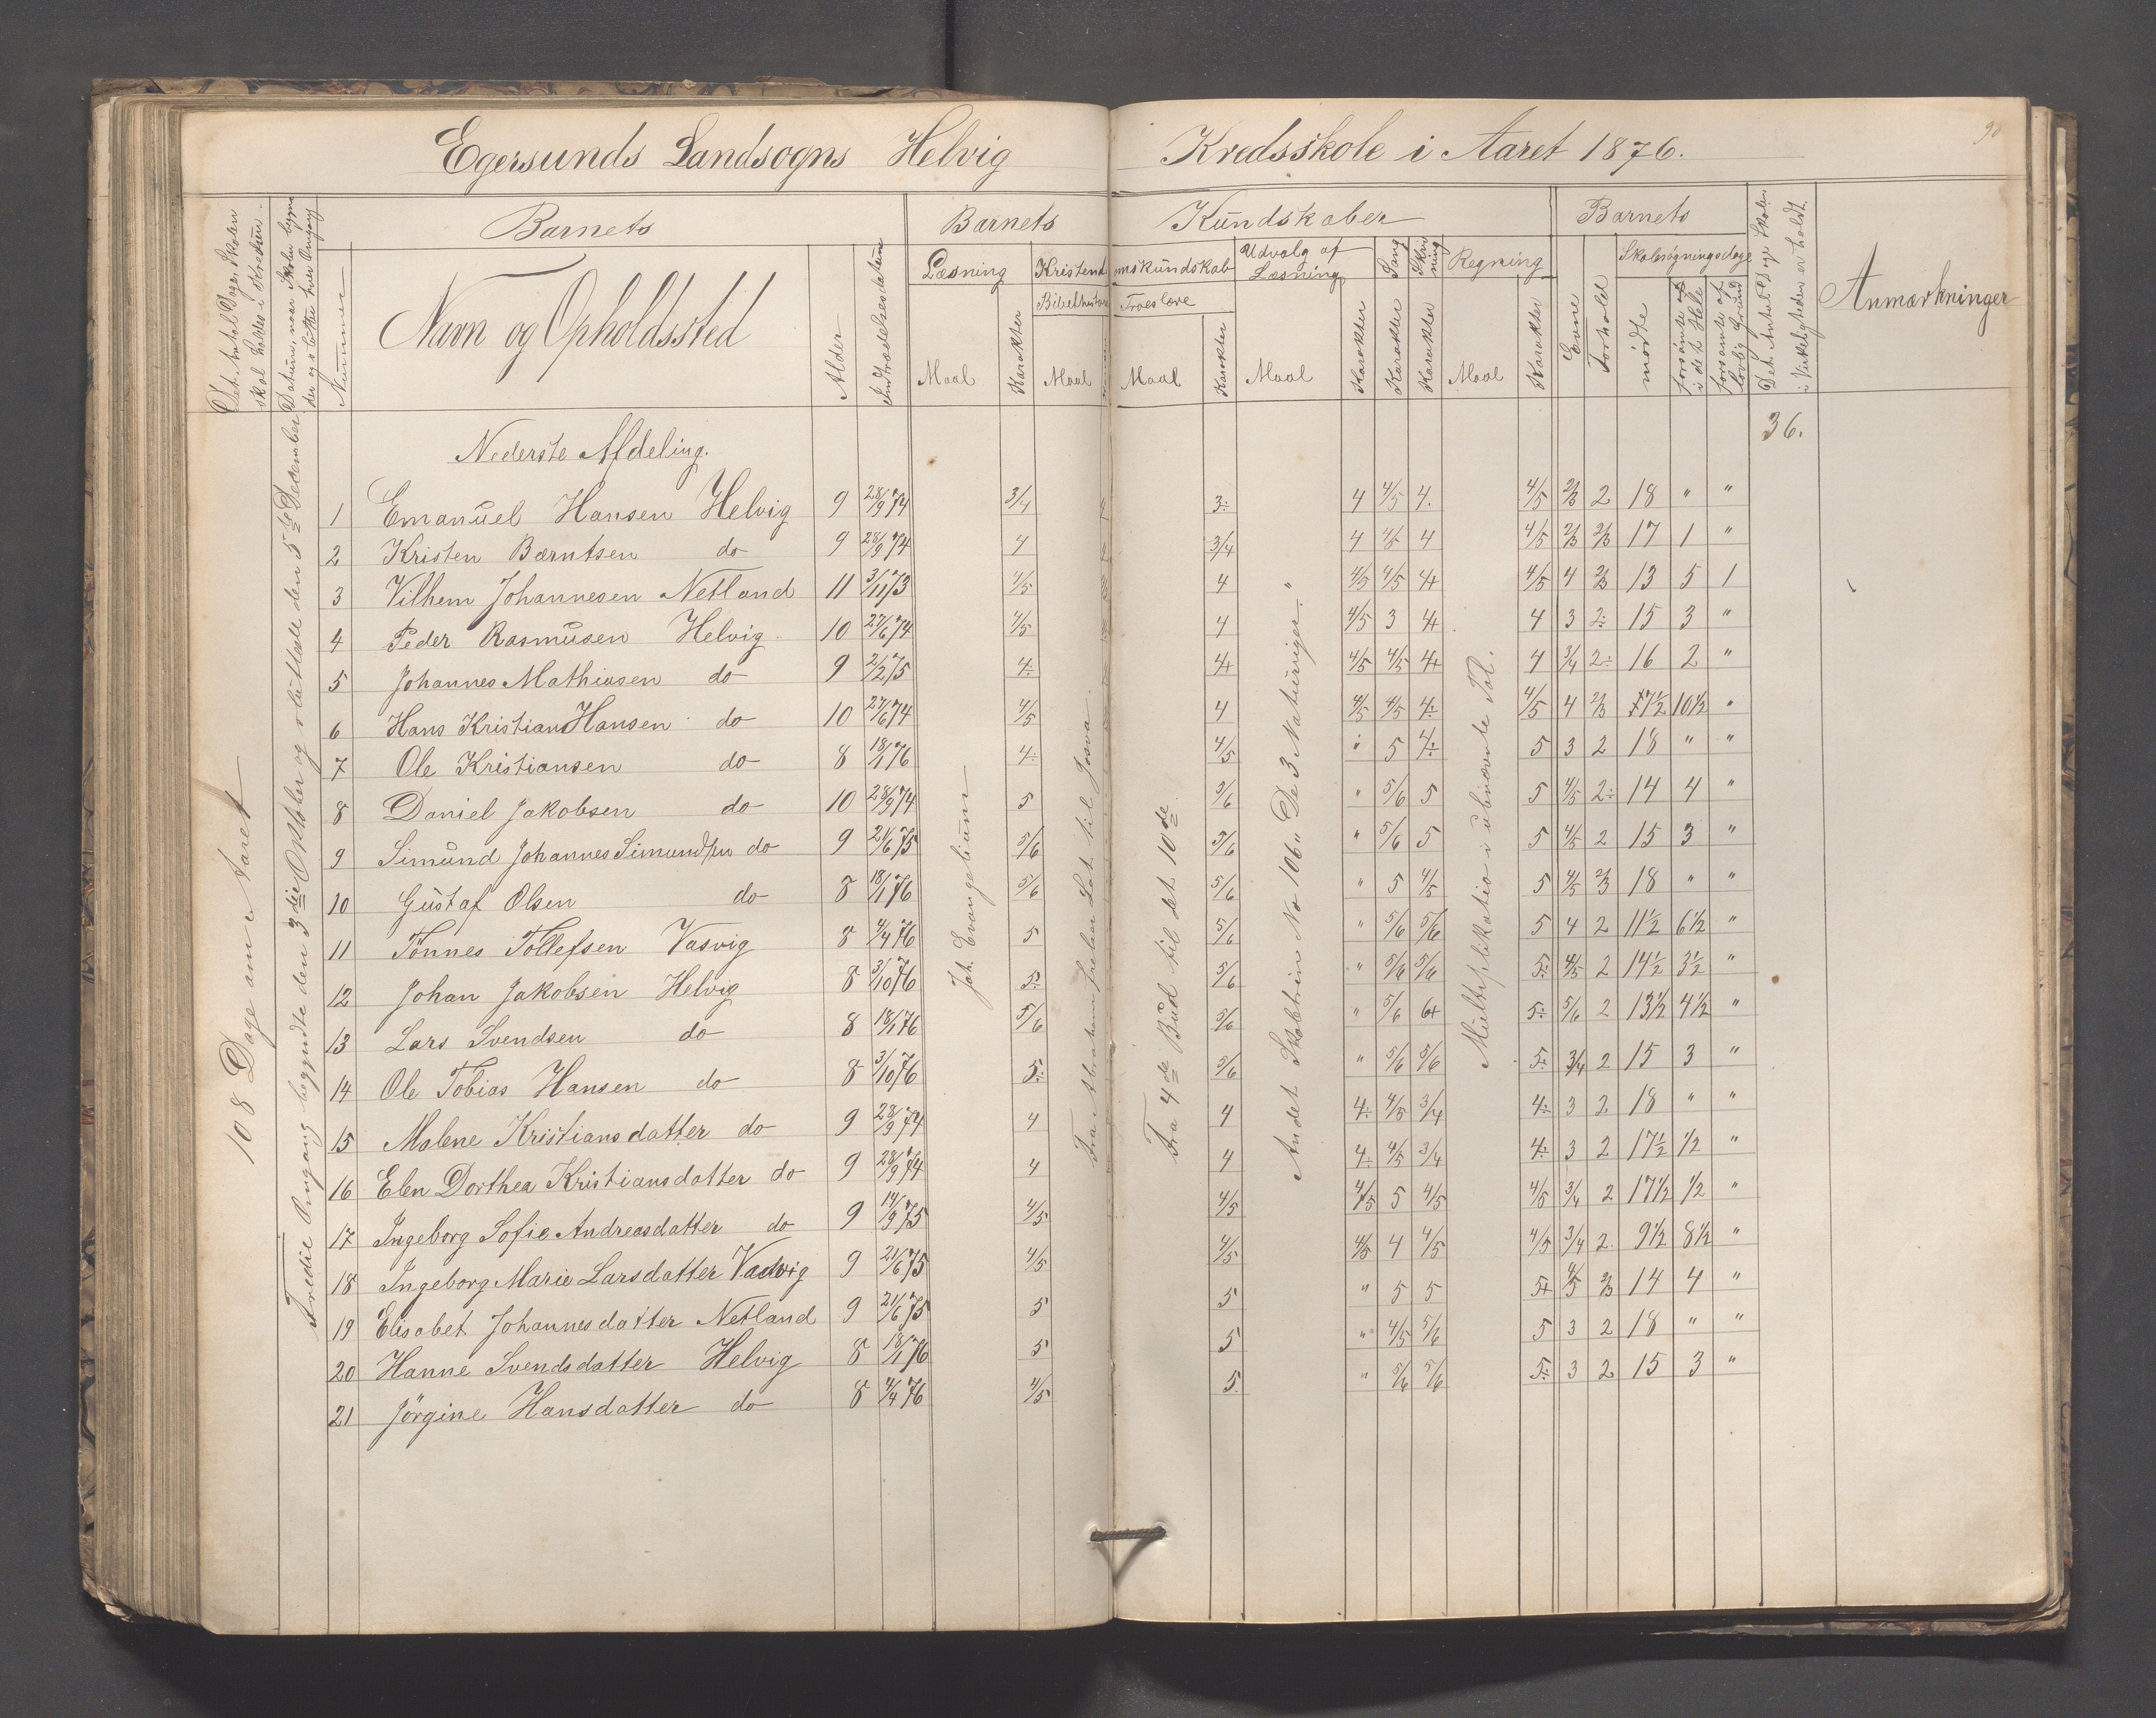 Egersunds Landsogns Helvig Kredsskole i Aaret 1876.
90
Det Antal Dage, Skolen skal holdes i Kredsen.
Datum, naar Skolen begynder og slutter hver Omgang
Nummer
Barnets
Navn og Opholdssted
Alder
Indtrædelsesdatum
Barnets Kundskaber
Læsning
Maal
Karakter
Kristendomskundskab
Bibelhistorie
Maal
Troeslære
Maal
Karakter
Udvalg af Læsning
Maal
Karakter
Sang
Karakter
Skrivning
Karakter
Regning
Maal
Karakter
Barnets
Evne
Forhold
Skolesøgningsdage
mödte
forsömte i det Hele
forsömte af lovlig Grund
Det Antal Dage Skolen i Virkeligheden er holdt.
Anmærkninger
Nederste Afdeling.
36.
108 Dage om Aaret
Tredie Omgang begyndte den 3die Oktober og sluttede den 5te December
Joh. Evangelium
Fra Abrahams Frelsen Lot til Josva.
Fra 4de Bud til det 10de.
Andet Skoletrin No 106 "De 3 Naturriger."
Multiplikatio i ubenævnte Tal.
1 Emanuel Hansen Helvig 9 28/9 74 3/4 3÷ 4 4/5 4. 4/5 2/3 2 18 " "
2 Kristen Bærntsen do 9 28/9 74 4 3/4 4 4/5 4 4/5 2/3 2/3 17 1 "
3 Vilhem Johannesen Netland 11 3/11 73 4/5 4 4/5 4/5 4+ 4/5 4 2/3 13 5 1
4 Peder Rasmusen Helvig 10 27/6 74 4/5 4 4/5 3 4+ 4 3 2÷ 15 3 "
5 Johannes Mathiasen do 9 2/2 75 4÷ 4+ 4/5 4/5 4+ 4 3/4 2÷ 16 2 "
6 Hans Kristian Hansen do 10 27/6 74 4/5 4 4/5 4/5 4÷ 4/5 4 2/3 7 1/2 10 1/2 "
7 Ole Kristiansen do 8 18/1 76 4÷ 4/5 " 5 4÷ 5 3 2 18 " "
8 Daniel Jakobsen do 10 28/9 74 5 5/6 " 5/6 5 5 4/5 2÷ 14 4 "
9 Simund Johannes Simundsen do 9 21/6 75 5/6 5/6 " 5/6 5 5 4/5 2 15 3 "
10 Gustaf Olsen do 8 18/1 76 5/6 5/6 " 5 4/5 5 4/5 2/3 18 " "
11 Tönnes Tollefsen Vasvig 8 4/4 76 5 5/6 " 5/6 5/6 5 4 2 11 1/2 6 1/2 "
12 Johan Jakobsen Helvig 8 3/10 76 5÷ 5/6 " 5/6 5/6 5÷ 4/5 2 14 1/2 3 1/2 "
13 Lars Svendsen do 8 18/1 76 5/6 5/6 " 5/6 6+ 5÷ 5/6 2 13 1/2 4 1/2 "
14 Ole Tobias Hansen do 8 3/10 76 5÷ 5/6 " 5/6 5/6 5÷ 3/4 2 15 3 "
15 Malene Kristiansdatter do 9 28/9 74 4 4 4÷ 4/5 3/4 4÷ 3 2 18 " "
16 Elen Dorthea Kristiansdatter do 9 28/9 74 4 4 4÷ 4/5 3/4 4÷ 3 2 17 1/2 1/2 "
17 Ingeborg Sofie Andreasdatter do 9 14/9 75 4/5 4/5 4/5 5 4/5 4/5 3/4 2 17 1/2 1/2 "
18 Ingeborg Marie Larsdatter Vadvig 9 21/6 75 4/5 4/5 4/5 4 4/5 4/5 3/4 2 9 1/2 8 1/2 "
19 Elisabet Johannesdatter Netland 9 21/6 75 5 5 " 5 5 5+ 4/5 2/3 14 4 "
20 Hanne Svendsdatter Helvig 8 18/1 76 5 5 " 4/5 5/6 5 3 2 18 " "
21 Jörgine Hansdatter do 8 4/4 76 4/5 5. " 5/6 5/6 5÷ 3 2 15 3 "